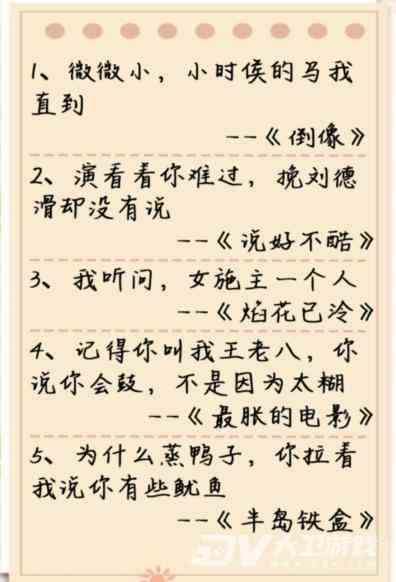 1、微微小，小时侯的马我
直到
--《倒像》
2、演看着你难过，挽刘德
滑却没有说
--《说好不酷》
3、我听问，女施主一个人
--《焰花已冷》
4、记得你叫我王老八，你
说你会鼓，不是因为太糊
--《最胀的电影》
5、为什么蒸鸭子，你拉着
我说你有些鱿鱼
--《半岛铁盒》
大卫游戏